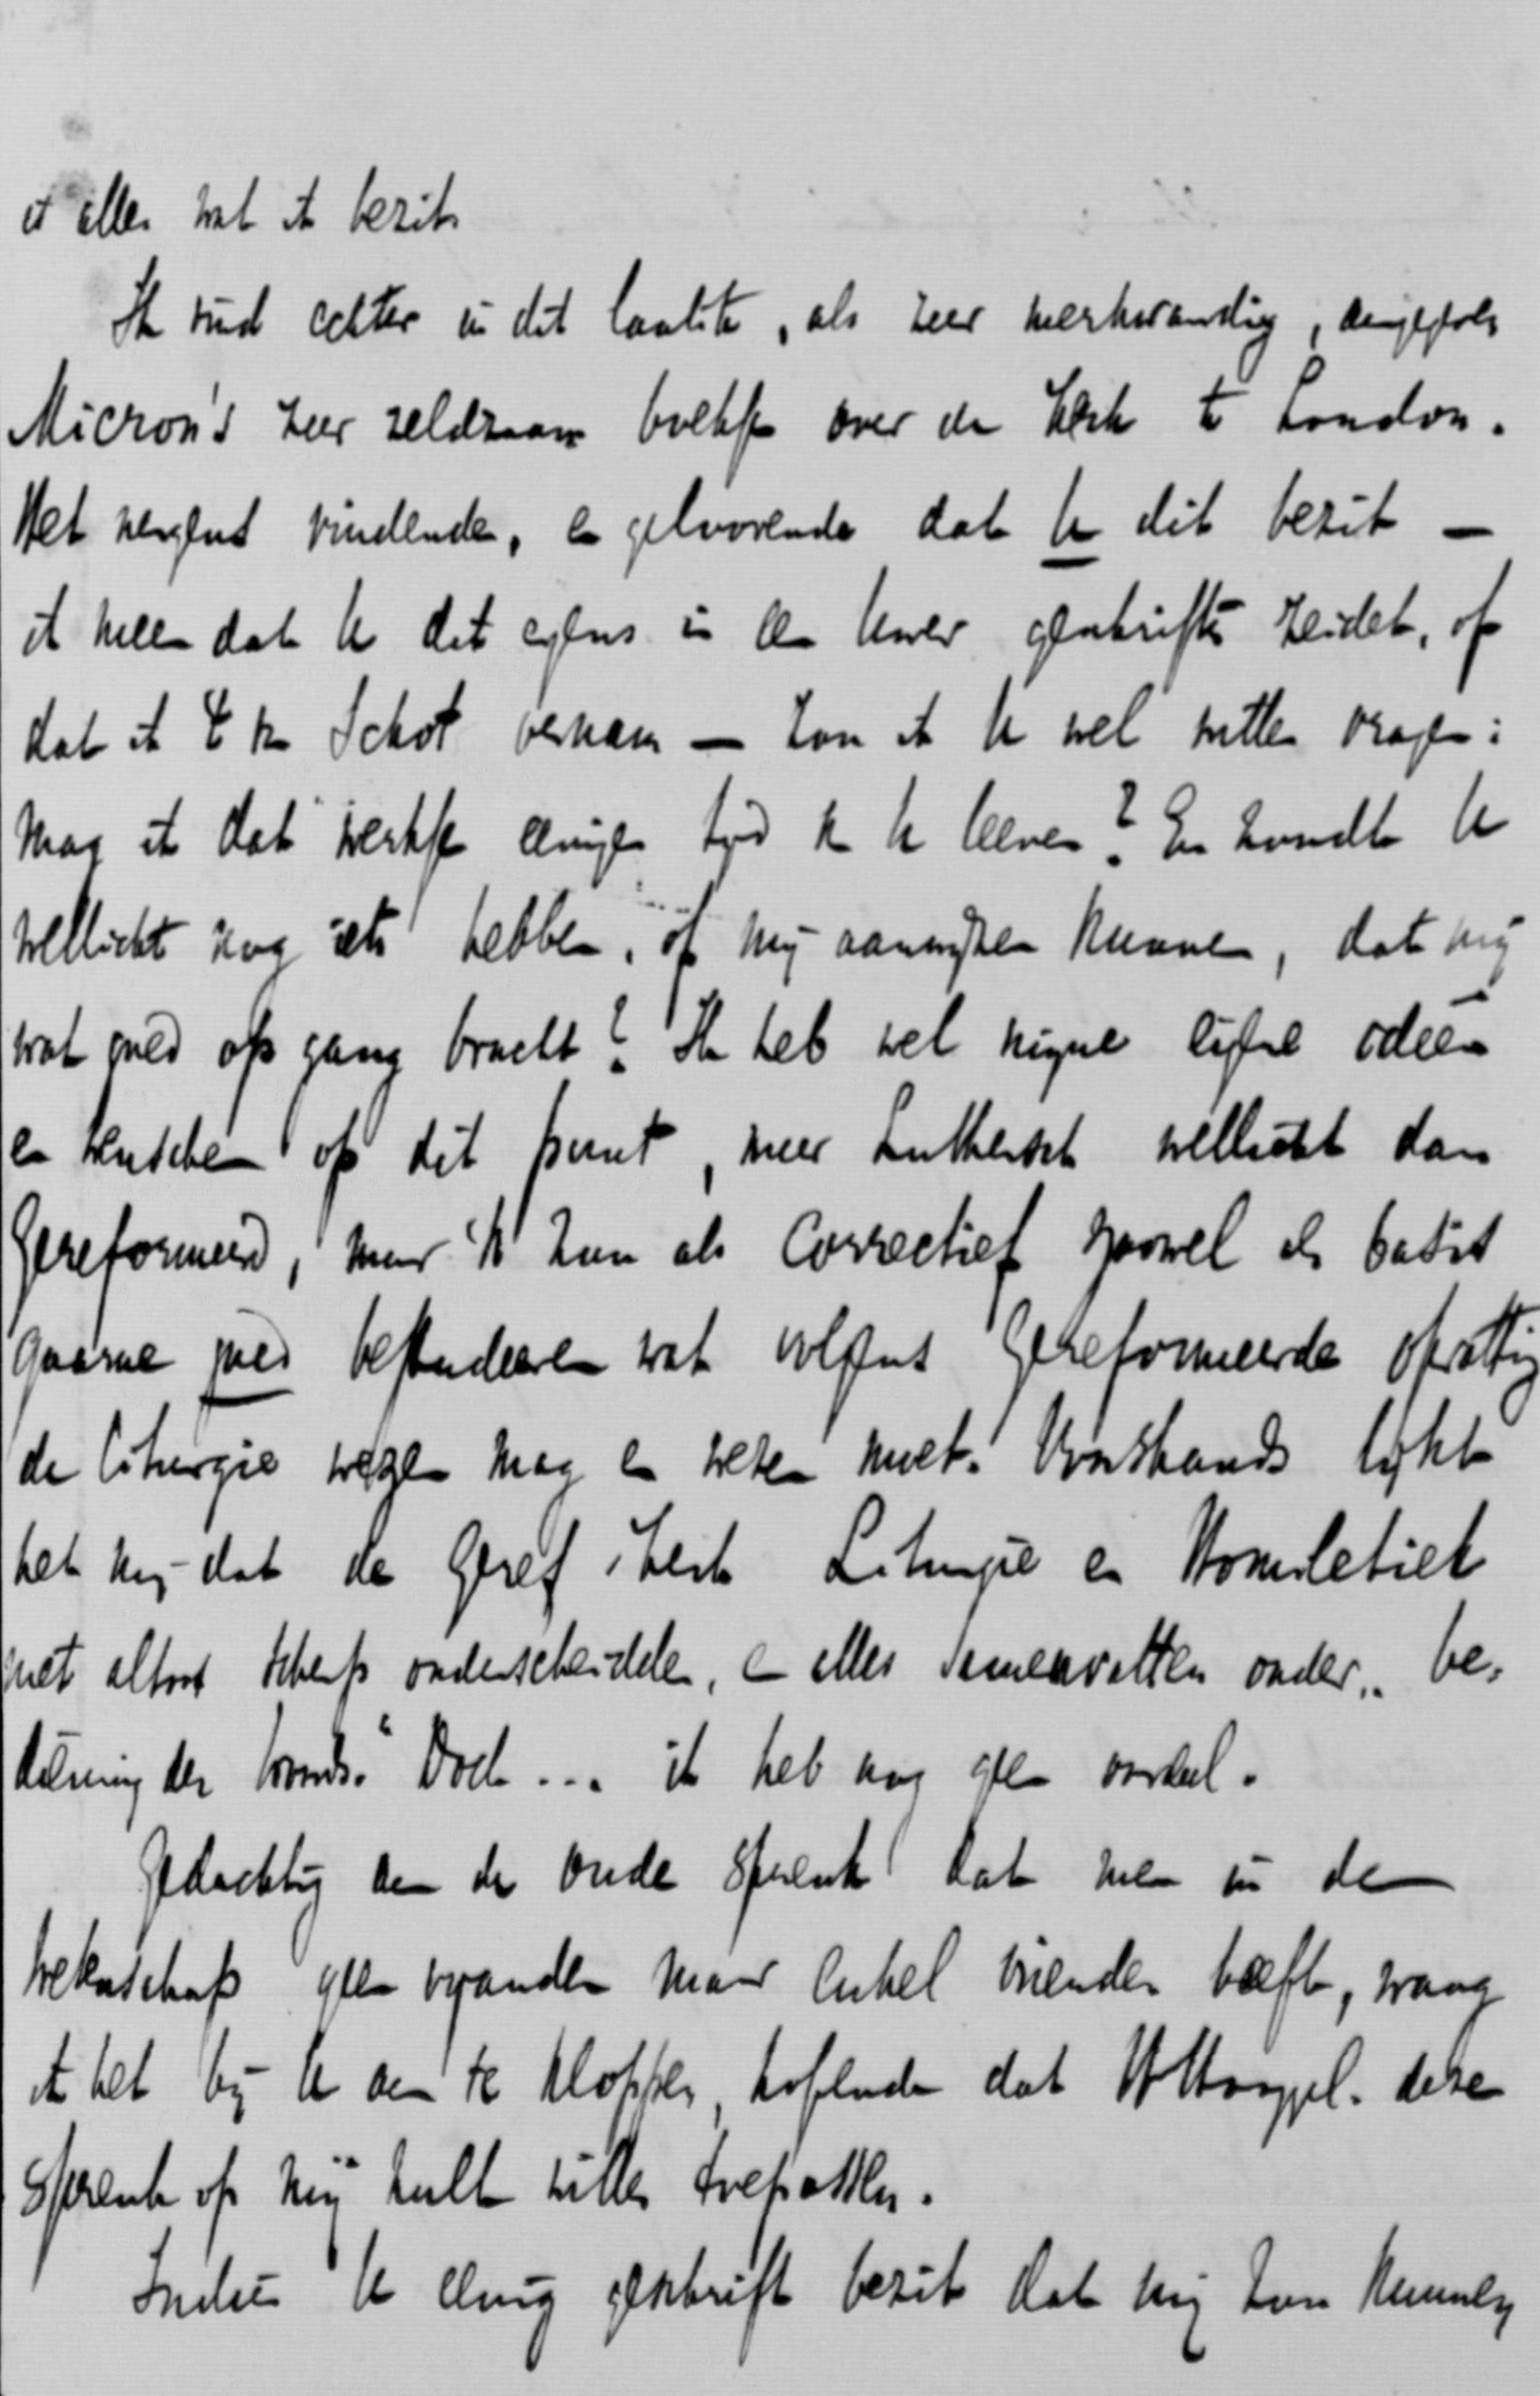 is alles wat ik bezit.
Ik vind echter in dit laatste, als zeer merkwaardig, aangegeven
Micron's zeer zeldzaam boekje over de Kerk te London.
Het nergens vindende, en geloovende dat U dit bezit —
ik meen dat U dit ergens in een Uwer geschriften zeidet, of
dat ik 't v. Schot vernam — zou ik U wel willen vragen:
mag ik dat werkje eenigen tijd v. U leenen? En zoudt U
wellicht nog iets hebben, of mij aanwijzen kunnen, dat mij
wat goed op gang bracht? Ik heb wel mijne eigene ideën
en wenschen op dit punt, meer Luthersch wellicht dan
Gereformeerd, maar 'k zou als correctief zoowel als basis
gaarne goed bestudeeren wat volgens Gereformeerde opvatting
de liturgie wezen mag en wezen moet. Voorshands lijkt
het mij dat de Geref. Kerk Liturgie en Homiletiek
niet altoos scherp onderscheidde, en alles samenvatten onder „be-
diening des Woords." Doch ... ik heb nog geen oordeel.
Gedachtig aan de oude spreuk dat men in de
wetenschap geen vijanden maar enkel vrienden heeft, waag
ik het bij U aan te kloppen, hopende dat UHoogGel. deze
spreuk op mij zult willen toepassen.
Indien U eenig geschrift bezit dat mij zou kunnen